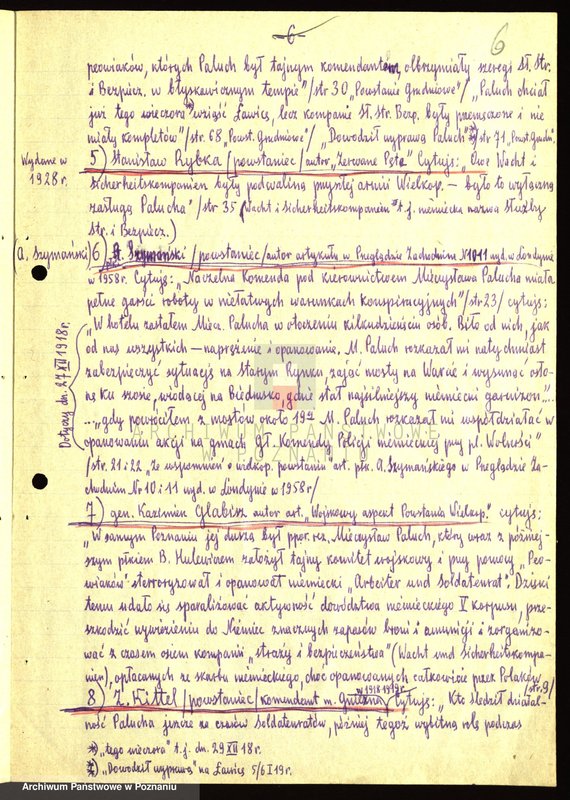 -6-
6
peowiaków, których Paluch był tajnym komendantem, olbrzymiały szeregi Sł. Str.
i Bezpiecz. w błyskawicznym tempie"/str 30 „Powstanie Grudniowe"/ „Paluch chciał
już tego wieczora *) wziąść Ławicę, lecz kompanie Sł. str. Bezp. były przemęczone i nie
miały kompletów"/str. 68 „Powst. Grudniowe"/ „Dowodził wyprawą Paluch" *) str 71 „Powst. Grudn."
Wydane w
1928 r.
5) Stanisław Rybka /powstaniec/ autor „Zerwane Pęta" Cytuję: „Owe Wacht i
Sicherheitskompanien były podwaliną przyszłej armii Wielkop. – było to wyłączną
zasługą Palucha" /str 35 (Wacht i Sicherheitskompanien" t.j. niemiecka nazwa służby
Str. i Bezpiecz.)
(A. Szymański)
6) płk. A. Szymański /powstaniec/ autor artykułu w Przeglądzie Zachodnim № 10 11 wyd. w Londynie
w 1958 r. Cytuję: „Naczelna Komenda pod kierownictwem Mieczysława Palucha miała
pełne garści roboty w niełatwych warunkach konspiracyjnych"/str 23/ cytuję:
Dotyczy dn. 27 XII 1918 r.
„W hotelu zastałem Miecz. Palucha w otoczeniu kilkudziesięciu osób. Biło od nich, jak
od nas wszystkich – naprężenie i opanowanie. M. Paluch rozkazał mi natychmiast
zabezpieczyć sytuację na Starym Rynku, zająć mosty na Warcie i wysunąć osło-
nę ku szosie, wiodącej na Biedrusko, gdzie stał najsilniejszy niemiecki garnizon"...
...„gdy powróciłem z mostów około 19tej M. Paluch rozkazał mi współdziałać w
opanowaniu akcji na gmach Gł. Komendy Policji niemieckiej przy pl. Wolności"
/str. 21 i 22 „Ze wspomnień o wielkop. powstaniu art. płk. A. Szymańskiego w Przeglądzie Za-
chodnim Nr 10 i 11 wyd. w Londynie w 1958 r/
7) gen. Kazimierz Glabisz autor art. „Wojskowy aspekt Powstania Wielkop." cytuję:
„W samym Poznaniu jej duszą był ppor. rez. Mieczysław Paluch, który wraz z później-
szym płkiem B. Hulewiczem założył tajny komitet wojskowy i przy pomocy „Peo-
wiaków" sterroryzował i opanował niemiecki „Arbeiter und Soldatenrat". Dzięki
temu udało się sparaliżować aktywność dowództwa niemieckiego V korpusu, prze-
szkodzić wywiezieniu do Niemiec znacznych zapasów broni i amunicji i zorganizo-
wać z czasem osiem kompanii „straży i bezpieczeństwa" (Wacht und Sicherheitskompa-
nien), opłacanych ze skarbu niemieckiego, choć opanowanych całkowicie przez Polaków
/str. 9/
8) Z. Kittel /powstaniec/ komendant m. Gniezna w 1918-1919 r. Cytuję: „Kto śledził działal-
ność Palucha jeszcze za czasów Soldatenratów, później tegoż wybitną rolę podczas
*) „tego wieczora" t.j. dn. 29 XII 18 r.
*) „Dowodził wyprawą" na Ławicę 5/6 I 19 r.
ARCHIWUM PAŃSTWOWE
W POZNANIU
Archiwum Państwowe w Poznaniu